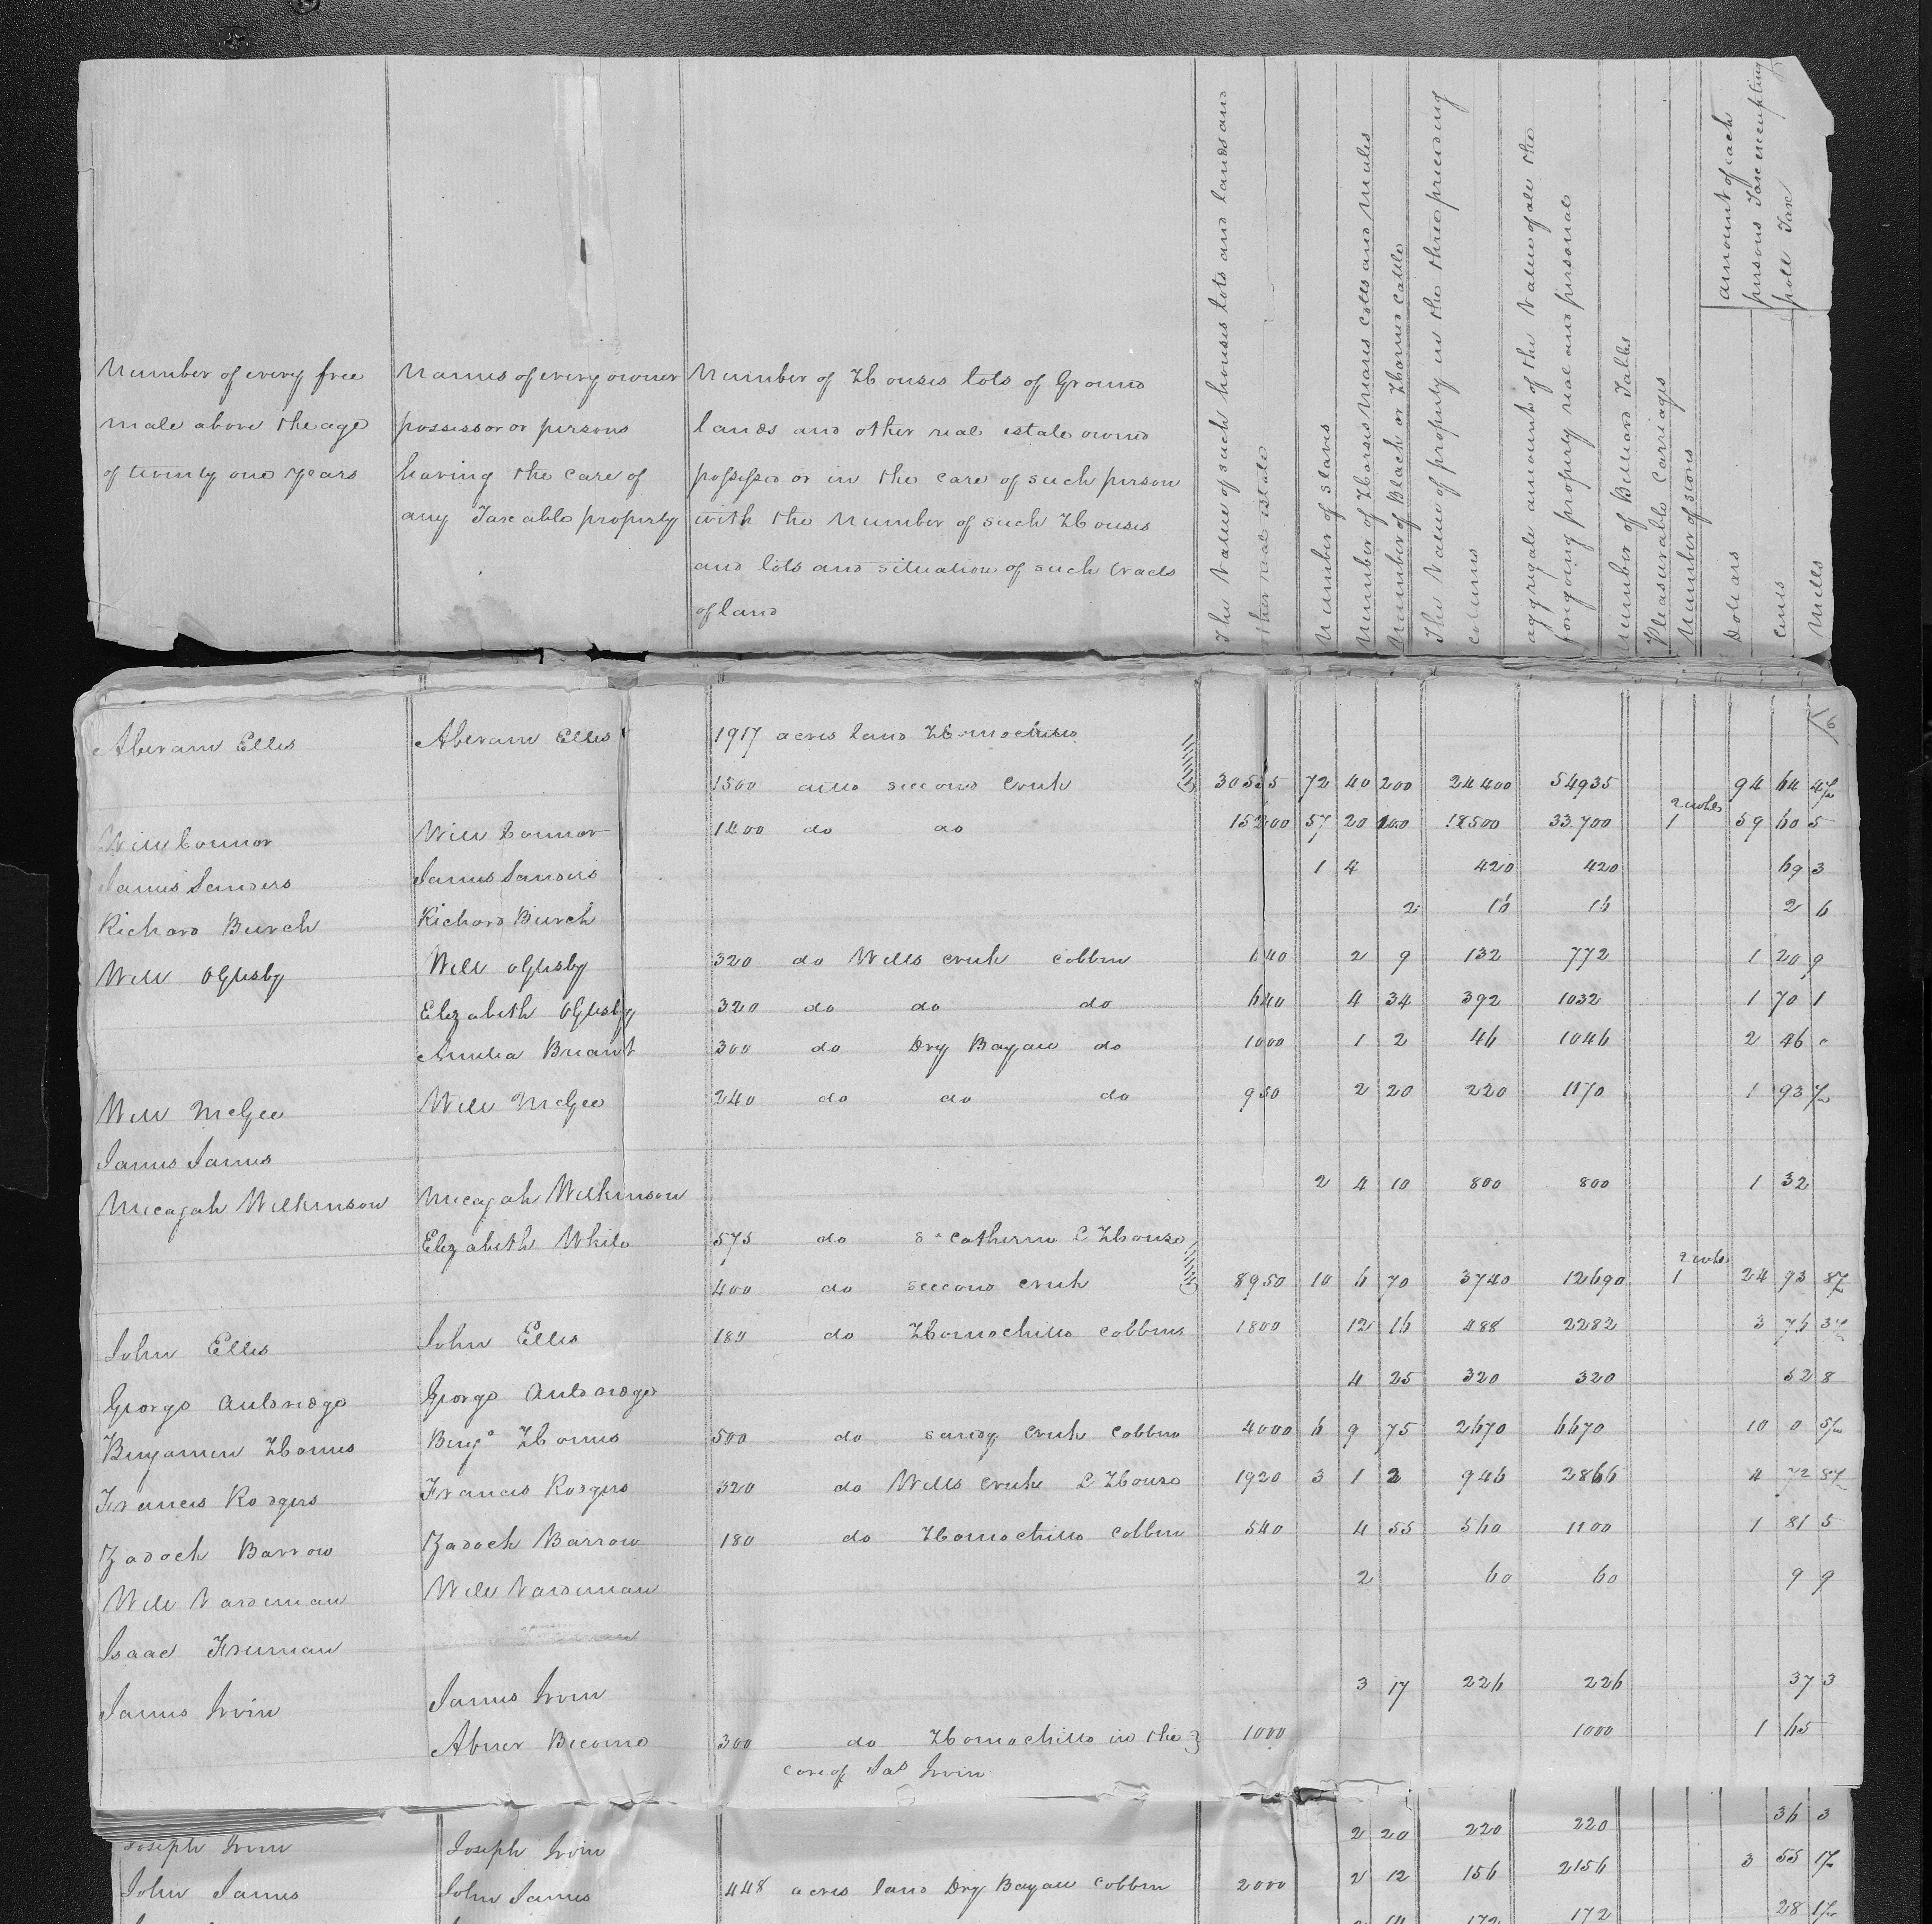 Number of every free
male above the age
of twenty one years
Names of every owner
possessor or persons
having the care of
any Taxable property
Number of Houses lots of Ground
lands and other real estate owned
possessed or in the care of such person
with the Number of such Houses
and lots and situation of such tracts
of land
The Value of such houses lots and lands and
other real estate
Number of slaves
Number of Horses Mares Colts and Mules
Number of Black or Horned Cattle
The Value of property in the three preceding
colums
aggregate amount of the Value of all the
forgoing property real and personal
Number of Billiard Tables
Pleasurable Carriages
Number of
amount of each
persons Tax excepting
poll Tax
Dollars
Cents
Mills
16
Abram Ellis Abram Ellis 1917 acres land Homochitto
1500 acres second Creek 30535 72 40 200 24400 54935 94 64 4½
2 wheles
Will Connor Will Connor 1400 do do 15200 57 20 100 18500 33.700 1 59 60 5
James Sanders James Sanders 1 4 420 420 69 3
Richard Burch Richard Burch 2 16 16 2 6
Will Oglesby Will Oglesby 320 do Wells Creek Cobbin 640 2 9 132 772 1 20 9
Elizabeth Oglesby 320 do do do 640 4 34 392 1032 1 70 1
Amelia Briant 300 do Dry Bayau do 1000 1 2 46 1046 2 46 0
Will McGee Will McGee 240 do do do 950 2 20 220 1170 1 93
James James
Micajah Wilkinson Micajah Wilkinson 2 4 10 800 800 1 32
Elizabeth White 575 do St Catherine C House
2 wheles
400 do second Creek 8950 10 6 70 3740 12690 1 24 93 8½
John Ellis John Ellis 180 do Homochitto Cobbins 1800 12 16 488 2282 3 76 3½
George Auldridge George Auldridge 4 25 320 320 52 8
Benjamin Homes Benjn Homes 500 do sandy Creek Cobbin 4000 6 9 75 2670 6670 10 0 5½
Francis Rodgers Francis Rodgers 320 do Wells Creek C House 1920 3 1 2 946 2866 4 72 8½
Zadock Barrow Zadock Barrow 180 do Homochitto Cobbin 540 4 55 560 1100 1 81 5
Will Vardeman Will Vardeman 2 60 60 9 9
Isaac Freeman
James Irvin James Irvin 3 17 226 226 37 3
Abner 300 do Homochitto in the 1000 1000 1 65
care of Jas Irvin
Joseph Irvin Joseph Irvin 2 20 220 220 36 3
John James John James 448 acres land Dry Bayau Cobbin 2000 2 12 156 2156 3 55 1½
172 172 28 1½